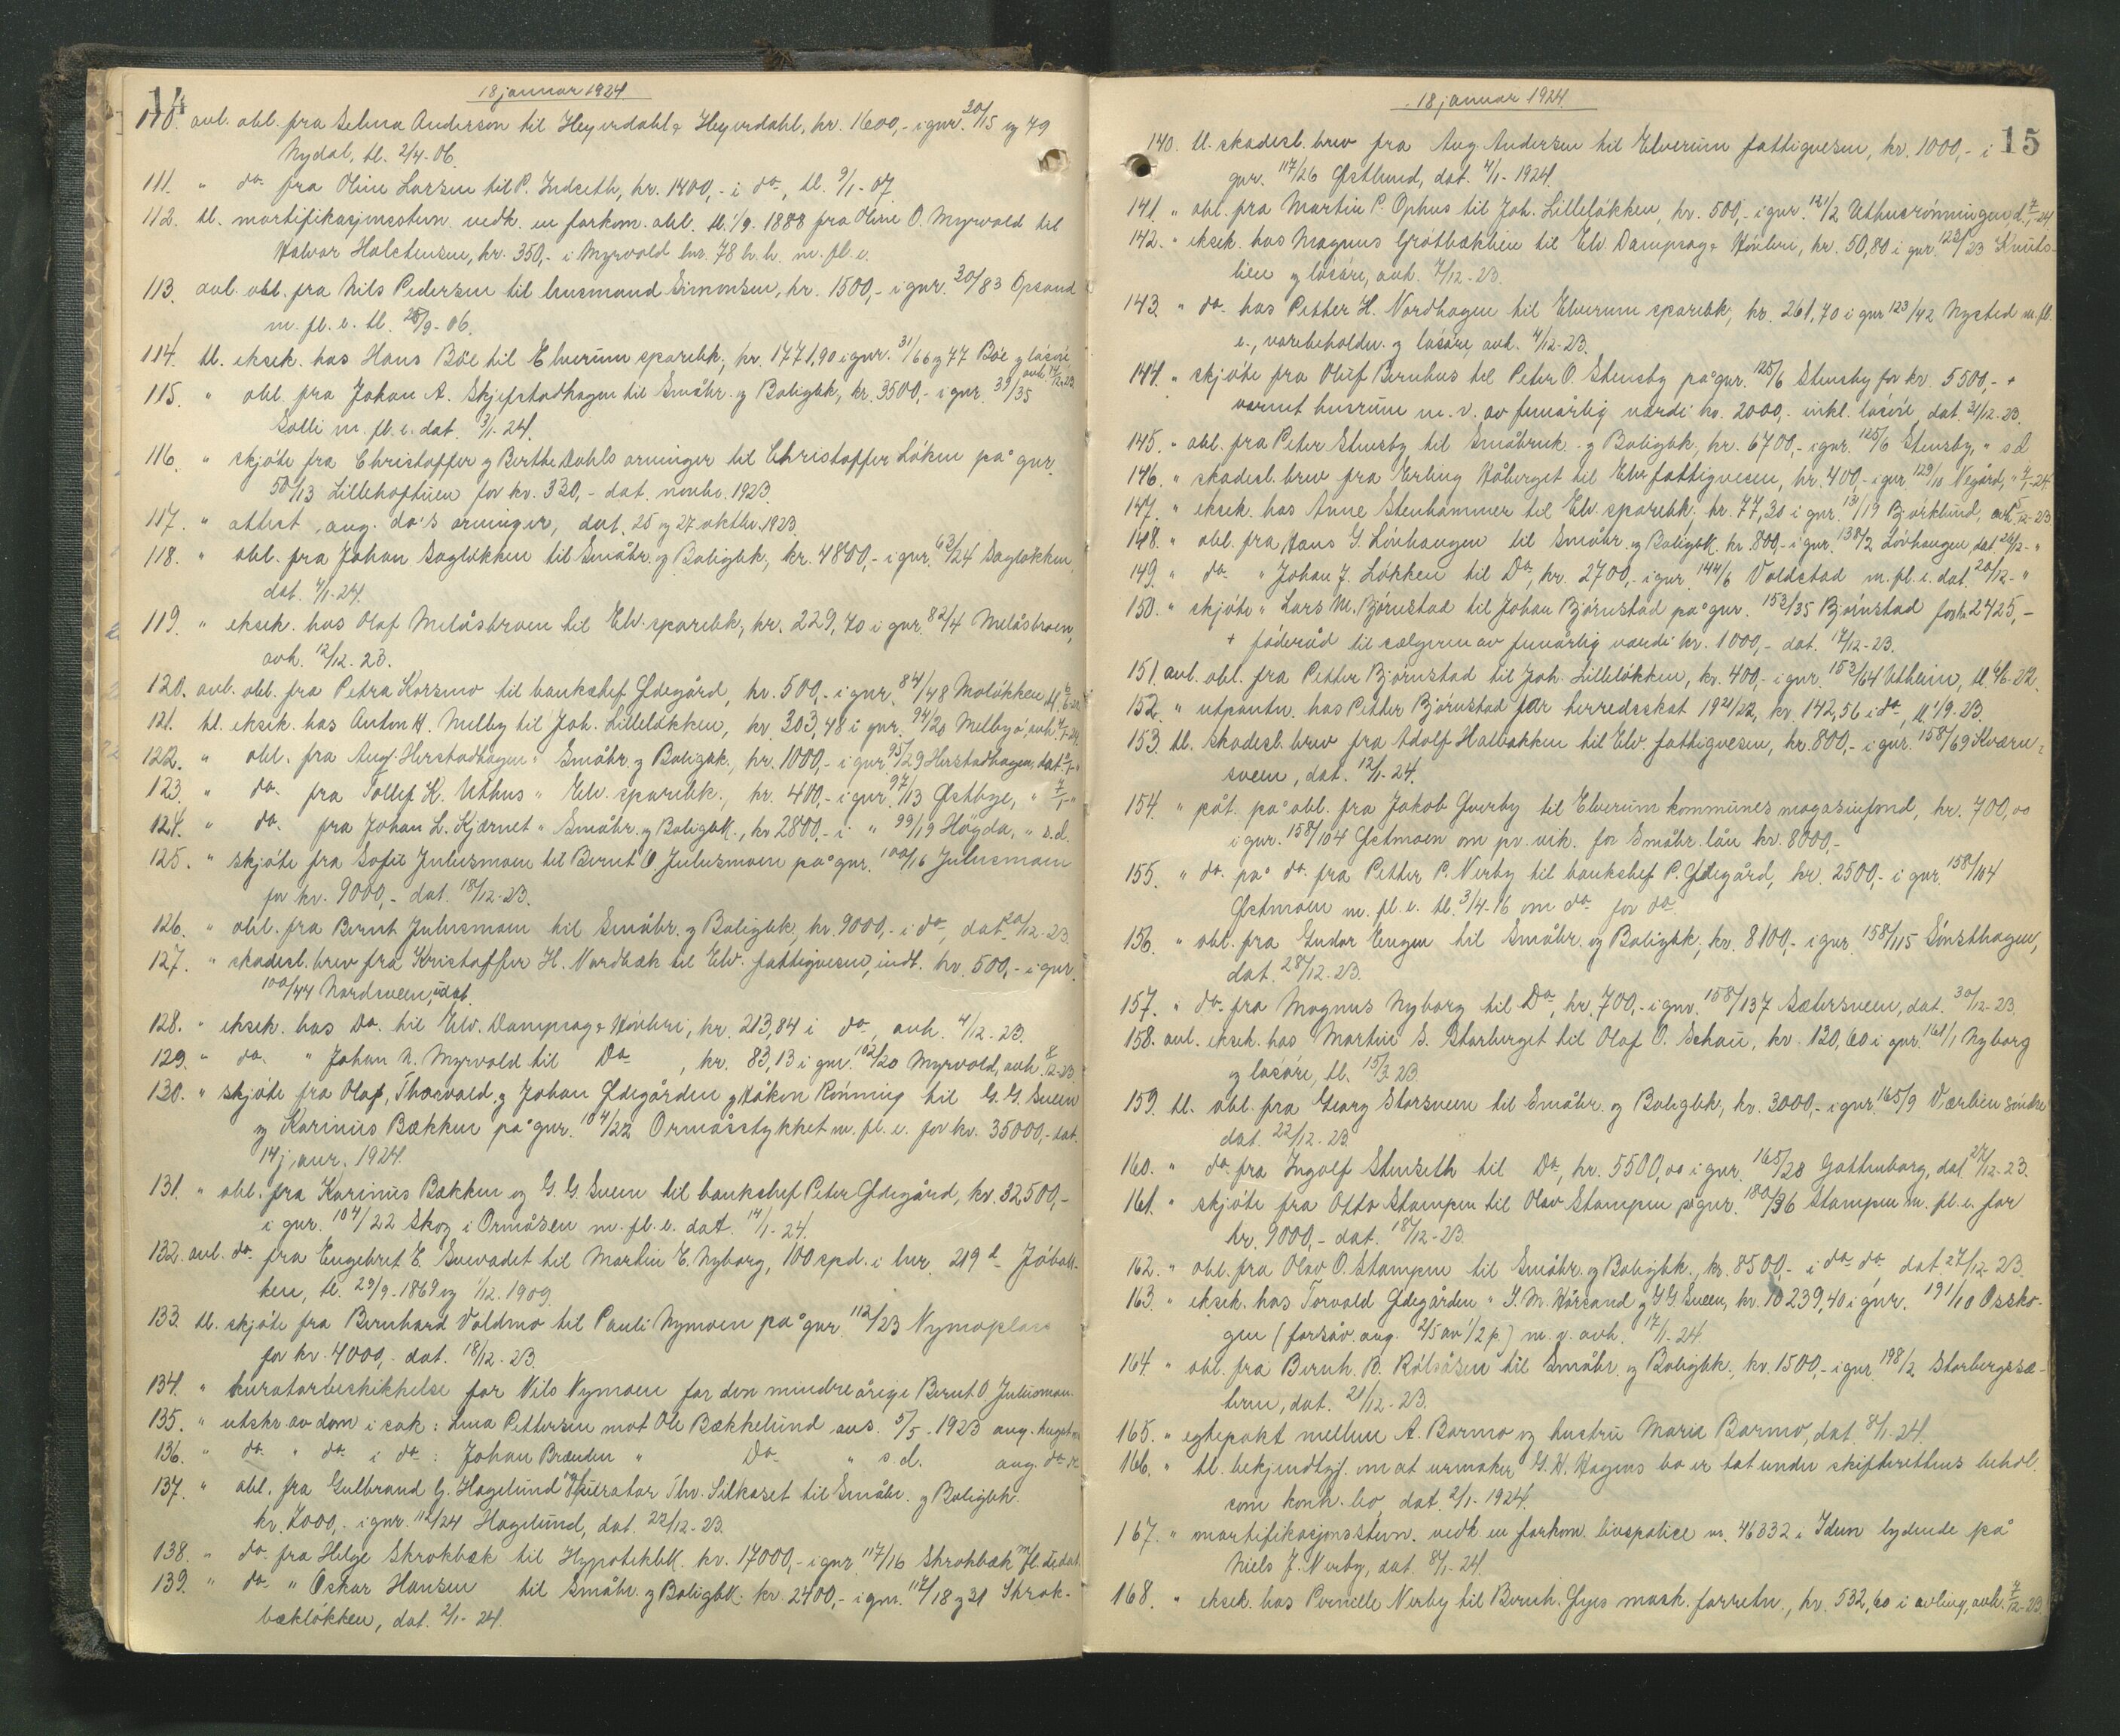 14
18 januar 1924
110. avl. obl. fra Selma Anderson til Heyerdahl & Heyerdahl, kr. 1600,- i gnr. 20/15 og 79
Nydal, tl. 2/4-06.
111. " do fra Oline Larsen til P. Indseth, kr. 1400,- i do, tl. 9/1-07
112. tl. mortifikasjonsstevn. vedk. en forkom. obl. tl. 1/9. 1888 fra Oline O. Myrvold til
Halvor Halstensen, kr. 350,- i Myrvold lnr. 78 h. h. m. fl. e.
113. avl. obl. fra Nils Pedersen til lensmand Simonsen, kr. 1500,- i gnr. 30/83 Opsand
m. fl. e. tl. 25/9-06.
114. tl. eksek. hos Hans Böe til Elverum sparebk., kr. 1771,90 i gnr. 31/66 og 77 Böe og lösöre avh. 14/12-23
115. " obl. fra Johan A. Skjefstadhagen til Småbr. og Boligbk, kr. 3500,- i gnr. 39/35
Solli m. fl. e. dat. 3/1-24.
116. " skjöte fra Christoffer og Berthe Dahls arvinger til Christoffer Löken på gnr.
50/13 Lillehoftuen for kr. 330,- dat. novbr. 1923.
117. " attest ang. do's arvinger, dat. 25 og 27 oktbr. 1923.
118. " obl. fra Johan Saglökken til Småbr. og Boligbk., kr. 4800,- i gnr. 63/24 Saglökken,
dat. 4/1-24.
119. " eksek. hos Olaf Melåsbroen til Elv. sparebk., kr. 229,70 i gnr. 82/4 Melåsbroen,
avh. 12/12-23.
120. avl. obl. fra Petra Korsmo til bankchef Ödegård, kr. 500,- i gnr. 84/48 Molökken,
121. tl. eksek. hos Anton H. Melby til Joh. Lillelökken, kr. 303,48 i gnr. 94/20 Melbyö, avh. 4/1-24.
122. " obl. fra Aug. Herstadhagen " Småbr. og Boligbk., kr. 1000,- i gnr. 95/29 Herstadhagen, dat.
123. " do fra Tollef K. Uthus " Elv. sparebk., kr. 400,- i gnr. 97/13 Östbye, " 7/1-"
124. " do fra Johan L. Kjærnet " Småbr. og Boligbk., kr. 2800,- i " 99/19 Högda, " s.d.
125. " skjöte fra Sofie Julusmoen til Bernt O. Julusmoen på gnr. 100/16 Julusmoen
for kr. 9000,- dat. 18/12-23.
126. " obl. fra Bernt Julusmoen til Småbr. og Boligbk., kr. 9000,- i do, dat. 20/12-23.
127. " skadesl. brev fra Kristoffer H. Nordbæk til Elv. fattigvesen, indt. kr. 500,- i gnr.
100/44 Nordsveen, udat.
128. " eksek. hos Do. til Elv. Dampsag & Hövleri, kr. 213,84 i do, avh. 4/12-23.
129. " do. " Johan N. Myrvold til Do, kr. 83,13 i gnr. 102/20 Myrvold, avh. 8/12-23.
130. " skjöte fra Olaf, Thorvald og Johan Ödegården og Håkon Rönning til G. G. Sveen
og Karinus Bækken på gnr. 104/22 Ormåsstykket m. fl. e. for kr. 35000,- dat.
14 januar. 1924.
131. " obl. fra Karinus Bækken og G. G. Sveen til bankchef Peter Ödegård, kr. 32500,-
i gnr. 104/22 Skog i Ormåsen m. fl. e. dat. 14/1-24.
132. avl. do. fra Engebret E. Svevadet til Martin E. Nyborg, 100 spd. i lnr. 219 d Jöbak-
ken, tl. 29/9-1869 og 1/12-1909
133. tl. skjöte fra Bernhard Voldmo til Pauli Nymoen på gnr. 112/23 Nymoplass
for kr. 4000,- dat. 18/12-23.
134. " kuratorbeskikkelse for Nils Nymoen for den mindreårige Bernt O. Julusmoen.
135. " utskr. av dom i sak: Lina Pettersen mot Ole Bækkelund avs. 5/5-1923 ang.
136. " do " do i do: Johan Brænden " Do " s.d. ang. do
137. " obl. fra Gulbrand G. Hagelund og kurator Thv. Silkoset til Småbr. og Boligbk.
kr. 7000,- i gnr. 112/24 Hagelund, dat. 22/12-23.
138. " do fra Helge Skrokbæk til Hypotekbk. kr. 17000,- i gnr. 117/16 Skrokbæk m fl. e. dat.
139. " do. " Oskar Hansen til Småbr. og Boligbk. kr. 2400,- i gnr. 117/18 og 31 Skrok-
bæklökken, dat. 2/1-24.
15
18 januar 1924
140. tl. skadesl. brev fra Aug. Andersen til Elverum fattigvesen, kr. 1000,- i
gnr. 117/26 Östlund, dat. 4/1-1924.
141. " obl. fra Martin P. Ophus til Joh. Lillelökken, kr. 500,- i gnr. 121/2 Uthusrönningen d. 7/1-24
142. " eksek. hos Magnus Grötbæklien til Elv. Dampsag & Hövleri, kr. 50,80 i gnr. 123/23 Knuts-
lien og lösöre, avh. 7/12-23.
143. " do. hos Petter H. Nordhagen til Elverum sparebk., kr. 261,70 i gnr 123/42 Nysted m. fl.
e., varebeholdn. og lösöre, avh. 4/12-23.
144. " skjöte fra Oluf Bernhus til Peter O. Stensby på gnr. 125/6 Stensby for kr. 5500,- +
varmt husrum m. v. av femårlig værdi kr. 2000,- inkl. lösöre, dat. 31/12-23.
145. " obl. fra Peter Stensby til Småbruk- og Boligbk., kr. 6700,- i gnr. 125/6 Stensby, " s.d.
146. " skadesl. brev fra Erling Håberget til Elv. fattigvesen, kr. 400,- i gnr. 129/10 Negård, " 4/1-24.
147. " eksek. hos Anne Stenhammer til Elv. sparebk. kr. 77,30 i gnr. 131/19 Björklund, avh. 5/12-23
148. " obl. fra Hans G. Lövhaugen til Småbr. og Boligbk. kr. 800,- i gnr. 138/2 Lövhaugen, dat. 26/12-"
149. " do. " Johan J. Lökken til Do, kr. 2700,- i gnr 144/6 Voldstad m. fl. e. dat. 20/12-"
150. " skjöte " Lars M. Björnstad til Johan Björnstad på gnr. 153/35 Björnstad for kr. 2425,-
+ föderåd til sælgeren av femårlig værdi kr. 1000,- dat. 17/12-23.
151. avl. obl. fra Petter Björnstad til Joh. Lillelökken, kr. 400,- i gnr. 153/64 Utheim, tl.
152. " utpantn. hos Petter Björnstad for herredsskat 1921/22, kr. 142,56 i do, tl. 1/9-23.
153. tl. skadesl. brev fra Adolf Halbakken til Elv. fattigvesen, kr. 800,- i gnr. 158/69 Kværn-
sveen, dat. 12/1-24.
154. " påt. på obl. fra Jakob Qverby til Elverum kommunes magasinfond, kr. 700,00
i gnr. 158/104 Östmoen om pr. vik. for Småbr. lån kr. 8000,-
155. " do. på do. fra Petter P. Nerby til bankchef P. Ödegård, kr. 2500,- i gnr. 158/104
Östmoen m. fl. e. tl. 3/4-16 om do for do
156. " obl. fra Gudor Engen til Småbr. og Boligbk., kr. 8100,- i gnr. 158/115 Sönsthagen,
dat. 28/12-23.
157. " do. fra Magnus Nyborg til Do, kr. 700,- i gnr. 158/137 Sætersveen, dat. 30/12-23.
158. avl. eksek. hos Martin S. Storberget til Olaf O. Schou, kr. 120,60 i gnr. 161/1 Nyborg
og lösöre, tl. 15/3 23.
159. tl. obl. fra Georg Storsveen til Småbr. og Boligbk., kr. 3000,- i gnr. 165/9 Værlien söndre
dat. 22/12-23
160. " do. fra Ingolf Stenseth til Do, kr. 5500,00 i gnr. 165/28 Gottenborg, dat. 27/12-23.
161. " skjöte fra Otto Stampen til Olav Stampen på gnr. 180/36 Stampen m. fl. e. for
kr. 9000,- dat. 18/12-23.
162. " obl. fra Olav O. Stampen til Småbr. og Boligbk., kr. 8500,- i do do, dat. 27/12-23.
163. " eksek. hos Torvald Ödegården " J. M. Hårsand og G. G. Sveen, kr. 10239,40 i gnr. 191/10 Ossko-
gen (forsåv. ang. 2/5 av 1/2 p.) m. v. avh. 17/1-24.
164. " obl. fra Bernh. B. Rötåsen til Småbr. og Boligbk., kr. 1500,- i gnr. 198/2 Storbergssæ-
teren, dat. 21/12-23.
165. " egtepakt mellem A. Barmo og hustru Marie Barmo, dat. 8/1-24.
166. " tl. bekjendtgj. om at urmaker G. H. Hagens bo er tat under skifterettens behdl.
som konk. bo, dat. 2/1-1924.
167. " mortifikasjonsstevn. vedk. en forkom. livspolice nr. 46332 i Idun lydende på
Niels J. Nerby, dat. 8/1-24.
168. " eksek. hos Pernille Nerby til Bernh. Gjes mask. forretn., kr. 532,60 i avling, avh. 7/12-23.